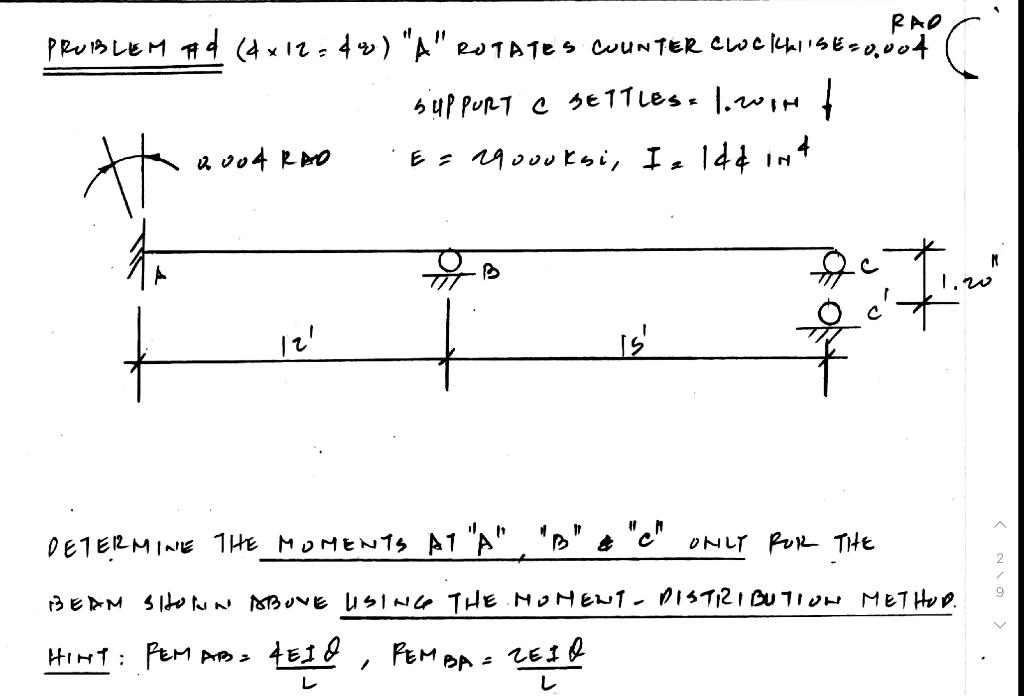 RAD
PROBLEM #4 (4 x 12 = 48) "A" ROTATES COUNTER CLOCKWISE = 0.004
SUPPORT C SETTLES = 1.20 IN ↓
0.004 RAD E = 29000 Ksi, I = 144 IN⁴
A B C 1.20"
C'
12' 15'
DETERMINE THE MOMENTS AT "A", "B" & "C" ONLY FOR THE
BEAM SHOWN ABOVE USING THE MOMENT-DISTRIBUTION METHOD.
HINT: FEM AB = 4EIθ/L, FEM BA = 2EIθ/L
2/9